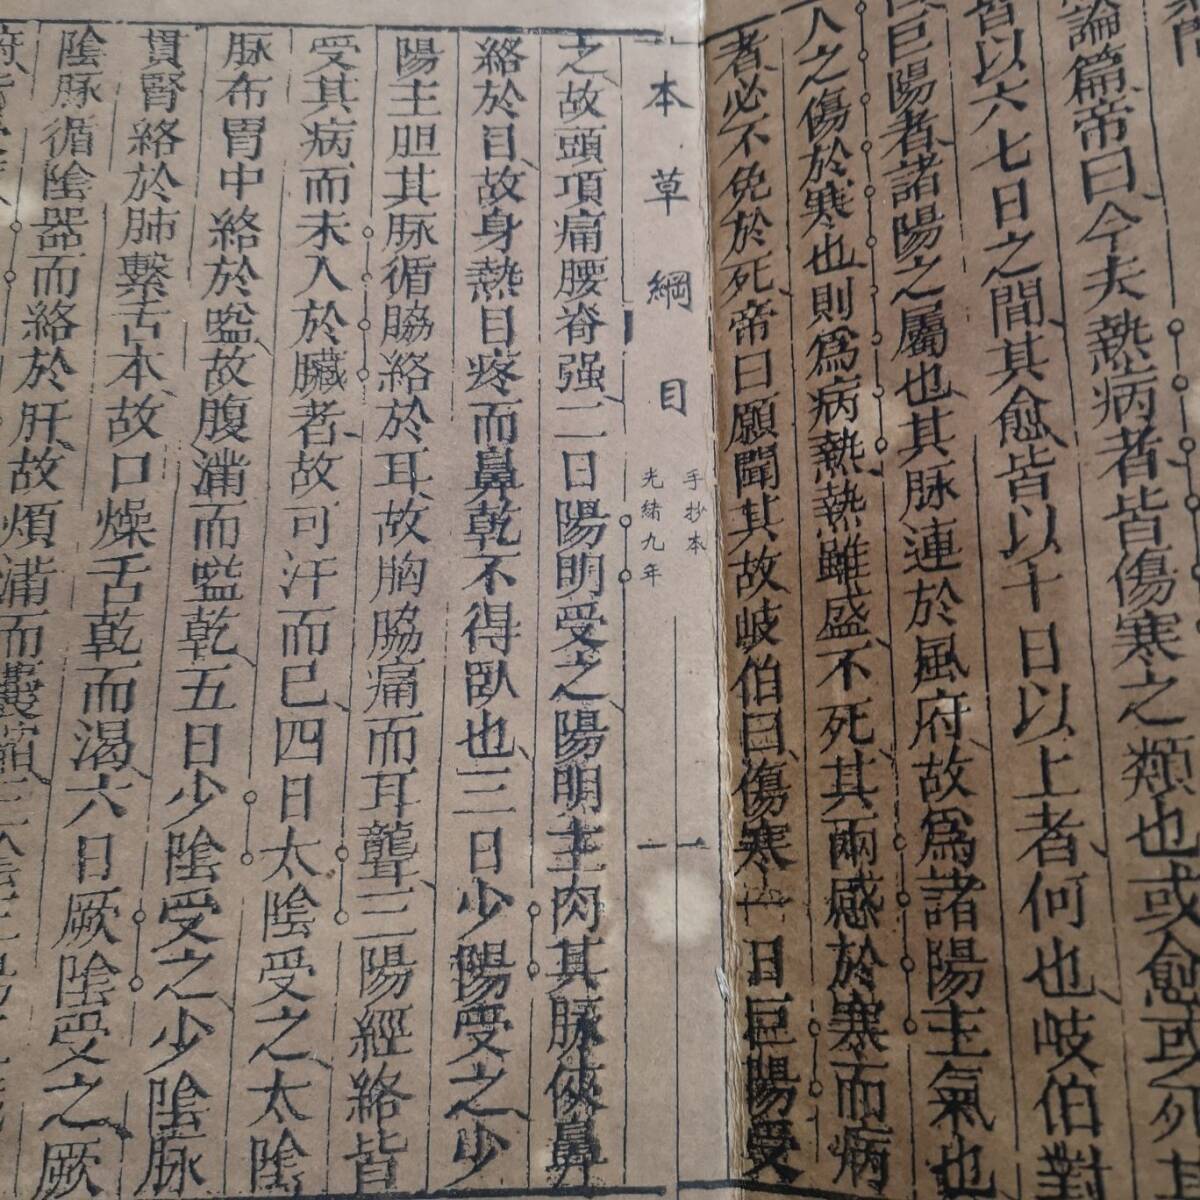 論篇帝曰今夫熱病者皆傷寒之類也或愈或死其
皆以六七日之間其愈皆以十日以上者何也岐伯對
巨陽者諸陽之屬也其脉連於風府故爲諸陽主氣也
人之傷於寒也則爲病熱熱雖盛不死其兩感於寒而病
者必不免於死帝曰願聞其故岐伯曰傷寒一日巨陽受
本草綱目
手抄本
光緒九年
一
之故頭項痛腰脊强二日陽明受之陽明主肉其脉俠鼻
絡於目故身熱目疼而鼻乾不得臥也三日少陽受之少
陽主胆其脉循脇絡於耳故胸脇痛而耳聾三陽經絡皆
受其病而未入於臟者故可汗而已四日太陰受之太陰
脉布胃中絡於嗌故腹滿而嗌乾五日少陰受之少陰脉
貫腎絡於肺繫舌本故口燥舌乾而渴六日厥陰受之厥
陰脉循陰器而絡於肝故煩滿而囊縮三陰三陽